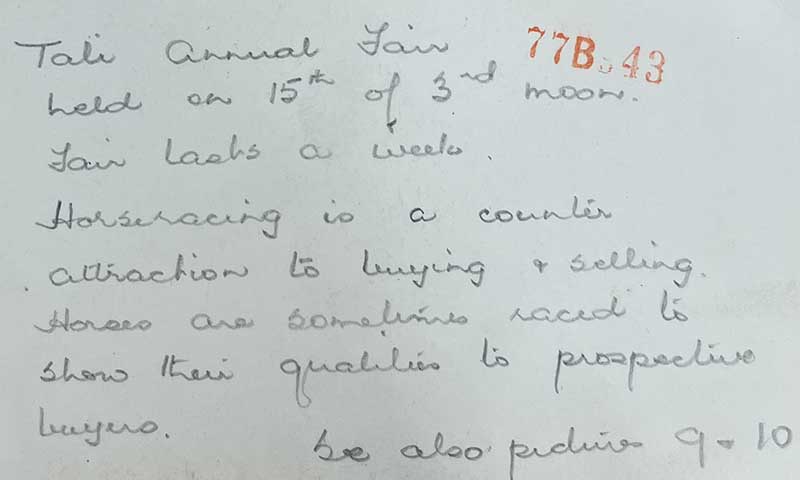 Tali Annual Fair 77B.43
held on 15th of 3rd moon.
Fair lasts a week.
Horseracing is a counter
attraction to buying & selling.
Horses are sometimes raced to
show their qualities to prospective
buyers.
See also pictures 9 & 10